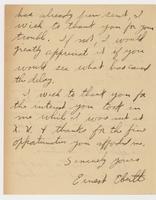 has already been sent, I
wish to thank you for your
trouble. If not I would
greatly appreciate it if you
would see what has caused
the delay.
I wish to thank you for
the interest you took in
me while I was out at
& thanks for the fine
opportunities you afforded me.
Sincerely yours
Ernest